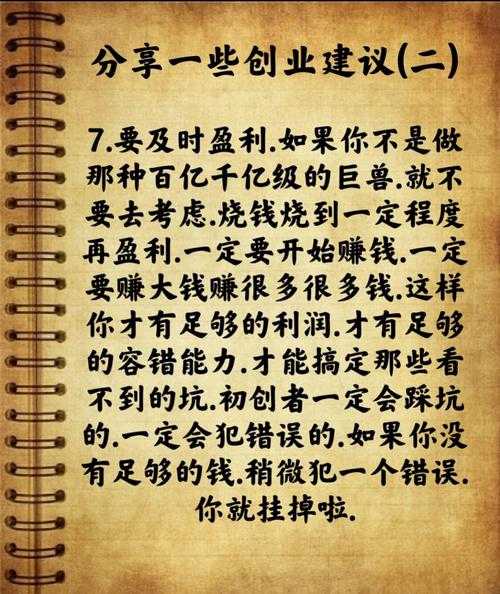 分享一些创业建议(二)
7.要及时盈利.如果你不是做
那种百亿千亿级的巨兽.就不
要去考虑.烧钱烧到一定程度
再盈利.一定要开始赚钱.一定
要赚大钱赚很多很多钱.这样
你才有足够的利润.才有足够
的容错能力.才能搞定那些看
不到的坑.初创者一定会踩坑
的.一定会犯错误的.如果你没
有足够的钱.稍微犯一个错误.
你就挂掉啦.